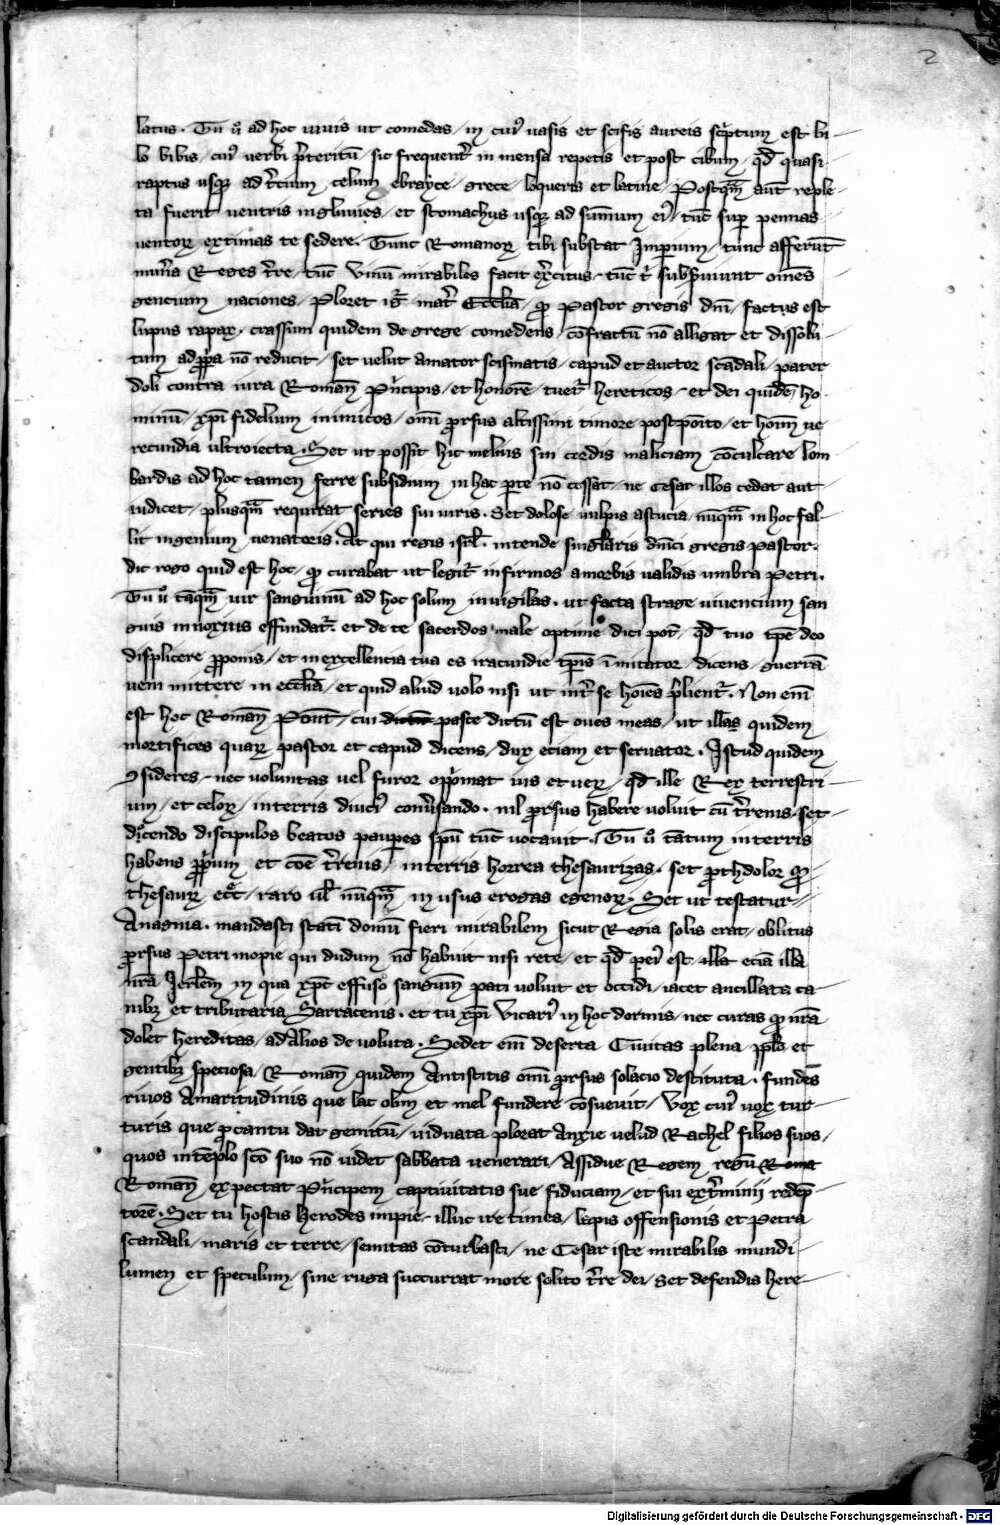 2
latus. Tu ů ad hoc viuis ut comedas / in cui9 vasis et scifis aureis sc͛ptum est bi
lo bibis / cui9 verbi p͛teritū / sic frequent͛ in mensa repetis et post cibum / qđ quasi
raptus usq3 ad t͛cium celum ebrayce / grece / loqueris et latine / Postqm̄ aut̄ reple
ta fuerit ventris ingluuies / et stomachus usq3 ad sūmum ei9 / tūc sup pennas
ventoꝝ extimas te sedere. Tunc Romanoꝝ tibi substat Imperium / tunc afferūt
mun͛a Reges t͛re / tūc vinū mirabiles facit ex͛citus / tūc t͛ subp͛munt om̄es
gencium naciones / Ploret ig͛ mat͛ Eccl̄ia / qꝫ Pastor gregis dn̄i / factus est
lupus rapax / crassum quidem de grege comedens / cōfractū nō alligat et dissolu
tum ad ꝓpͥa nō reducit / set velut amator scismatis / capud et auctor scādali / pater
doli contra iura Romaň Pͥncipis / et honorē / tuet͛ hereticos / et dei quidē / ho
minū / xp̄i fidelium inimicos / om̄i ꝓrsus altissimi timore postpōito / et hom̄ ve
recundia ultroiecta. Set ut possit hic melius sui cordis maliciam cōculcare lom
bardis ad hoc tamen ferre subsidium in hac ꝑte nō cessat / ne Cesar illos cedat aut
iudicet / plusqm̄ requirat series sui iuris. Set dolose vulpis astucia nūqm̄ in hoc fal
lit ingenium venatoris. At qui regis isrl̄. intende singlaris dn̄ici gregis pastor.
dic rogo quid est hoc / qꝫ curabat ut legit͛ infirmos a morbis validis umbra Petri.
Tu ů tāqm̄ vir sanguinū ad hoc solum inuigilas. ut facta strage viuencium san
guis innoxius effundat͛. et de te sacerdos male optime dici pot̄ / qđ tuo tp̄e deo
displicere ꝓponis / et in excellencia tua es iracundie tp̄is īmitator dicens / guerrā
veni mittere in eccl̄ia / et quid aliud volo nisi ut int͛ se hoīes p͛lient͛. Non em̄
est hoc Romaň Pont̄ / cui dictū pasce dictū est oues meas / ut illas quidem
mortifices quaꝝ pastor et capud dicens / dux eciam et seruator. Istud quidem
ꝯsideres / nec voluntas vel furor opp͛mat ius et veꝝ / qđ ille Rex terrestri
um / et celoꝝ / in terris diuci9 conůsando. nil ꝓrsus habere voluit cū t͛renis. set
dicendo discipulos beatos pauꝑes spū tūc vocauit. Tu ů tātum in terris
habens ꝓpͥum et cōe t͛renis / in terris horrea thesaurizas. set ꝓthdolor qꝫ
thesauꝝ ecc͛ / raro ul̄ nūqm̄ in usus erogas egenoꝝ. Set ut testatur
Anagnia. mandasti statī domū fieri mirabilem sicut Regia solis erat / oblitus
ꝓrsus Petri inopie qui dudum nō habuit nisi rete / et qđ peius est illa eciā illa
nr̄a Ierl̄em in qua xp̄c effuso sanguin͛ pati voluit et occidi / iacet ancillata ca
nibꝫ et tributaria Sarracenis. et tu xp̄i Vicari9 in hoc dormis / nec curas qꝫ nr̄a
dolet hereditas / ad Alios deuoluta. Sedet em̄ deserta Ciuitas plena pplo et
gentibꝫ speciosa / Romaň quidem Antistitis om̄i ꝓrsus solacio destituta. fundēs
riuos Amaritudinis que lac olim et mel fundere cōsueuit / Vox cui9 uox tur
turis que ꝓ cantu dat gemitū / viduata plorat Anxie velud Rachel filios suos /
quos in tēplo sc̄o suo nō videt sabbata venerari / Assidue Regem regū Roma
Romaň expectat Pͥncipem captiuitatis sue fiduciam / et sui ext͛minii redēp
torē. Set tu hostis herodes impie / illuc ire times / lapis offensionis et Petra
scandali / maris et terre / semitas cōturbasti / ne Cesar iste mirabilis mundi
lumen et speculum / sine ruga succurrat more solito t͛re dei / Set defendis here
Digitalisierung gefördert durch die Deutsche Forschungsgemeinschaft - DFG